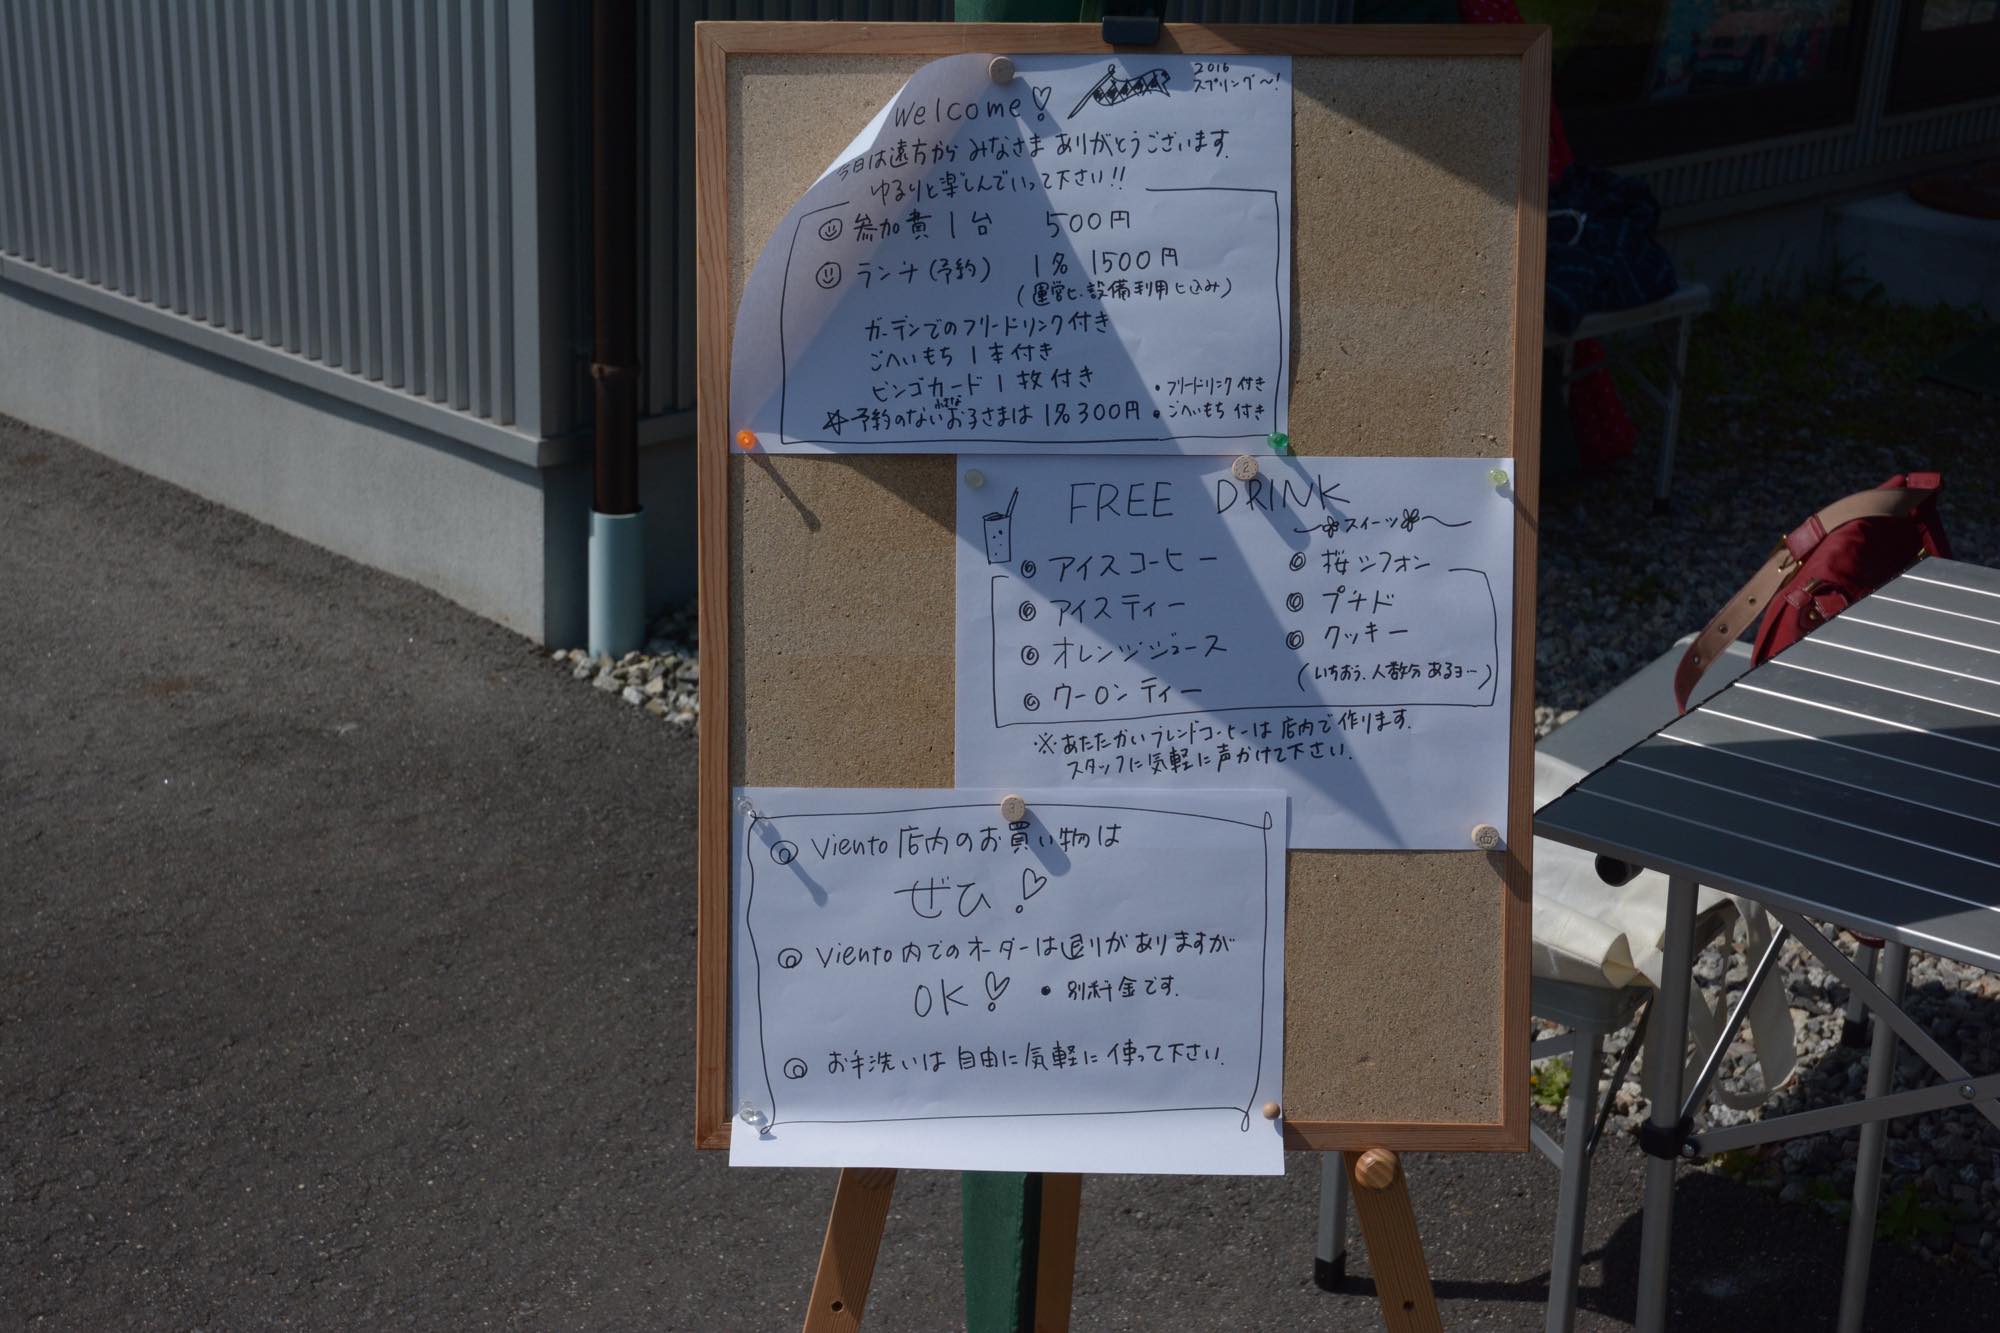 2016
スプリング〜!
Welcome!
今日は遠方から みなさま ありがとうございます.
ゆるりと楽しんでいって下さい!!
参加費 1台 500円
ランチ(予約) 1名 1500円
(運営ヒ、設備利用ヒ込み)
ガーデンでのフリードリンク付き
ごへいもち 1本付き
ビンゴカード 1枚付き
・フリードリンク付き
小さな
☆予約のないお子さまは 1名300円
・ごへいもち 付き
2
FREE DRINK
〜スイーツ〜
◎ アイスコーヒー
◎ 桜シフォン
◎ アイスティー
◎ プチド
◎ オレンジジュース
◎ クッキー
◎ ウーロンティー
(いちおう、人数分 あるヨ…)
※ あたたかいブレンドコーヒーは 店内で作ります.
スタッフに気軽に声かけて下さい.
3
◎ Viento 店内のお買い物は
ぜひ!
◎ Viento 内でのオーダーは限りがありますが
OK! ・別料金です.
◎ お手洗いは 自由に気軽に 使って下さい.